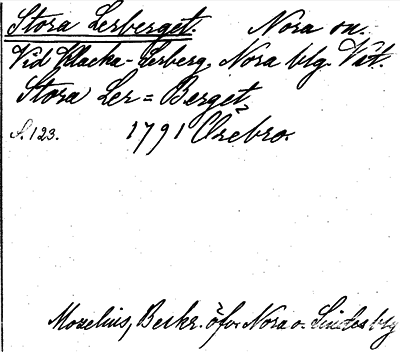 Stora Lerberget. Nora sn.
Vid Klacka-Lerberg, Nora blg. Vstl.
Stora Ler=Berget,
S. 123. 1791 Örebro.
Mozelius, Beskr. öfver Nora o. Lindes blg